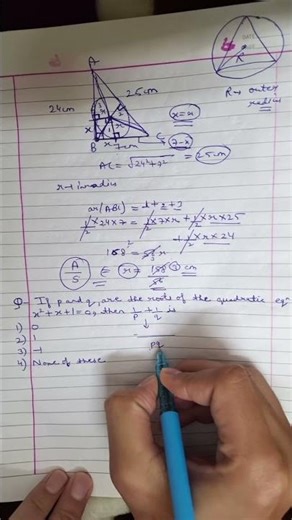 A
24cm
25cm
x
x
B
7cm
C
x=r
7-x
R
R → outer
radius
AC = √24²+7² = 25cm
r → inradius
ar(ABC) = 1+2+3
1/2 × 24 × 7 = 1/2 × 7 × r + 1/2 × r × 25
+ 1/2 × r × 24
168 =
A/S = r =
3 cm
Q- If p and q, are the roots of the quadratic eqⁿ
x²+x+1=0, then 1/p + 1/q is
1) 0
2) 1
3) -1
4) None of these
pq